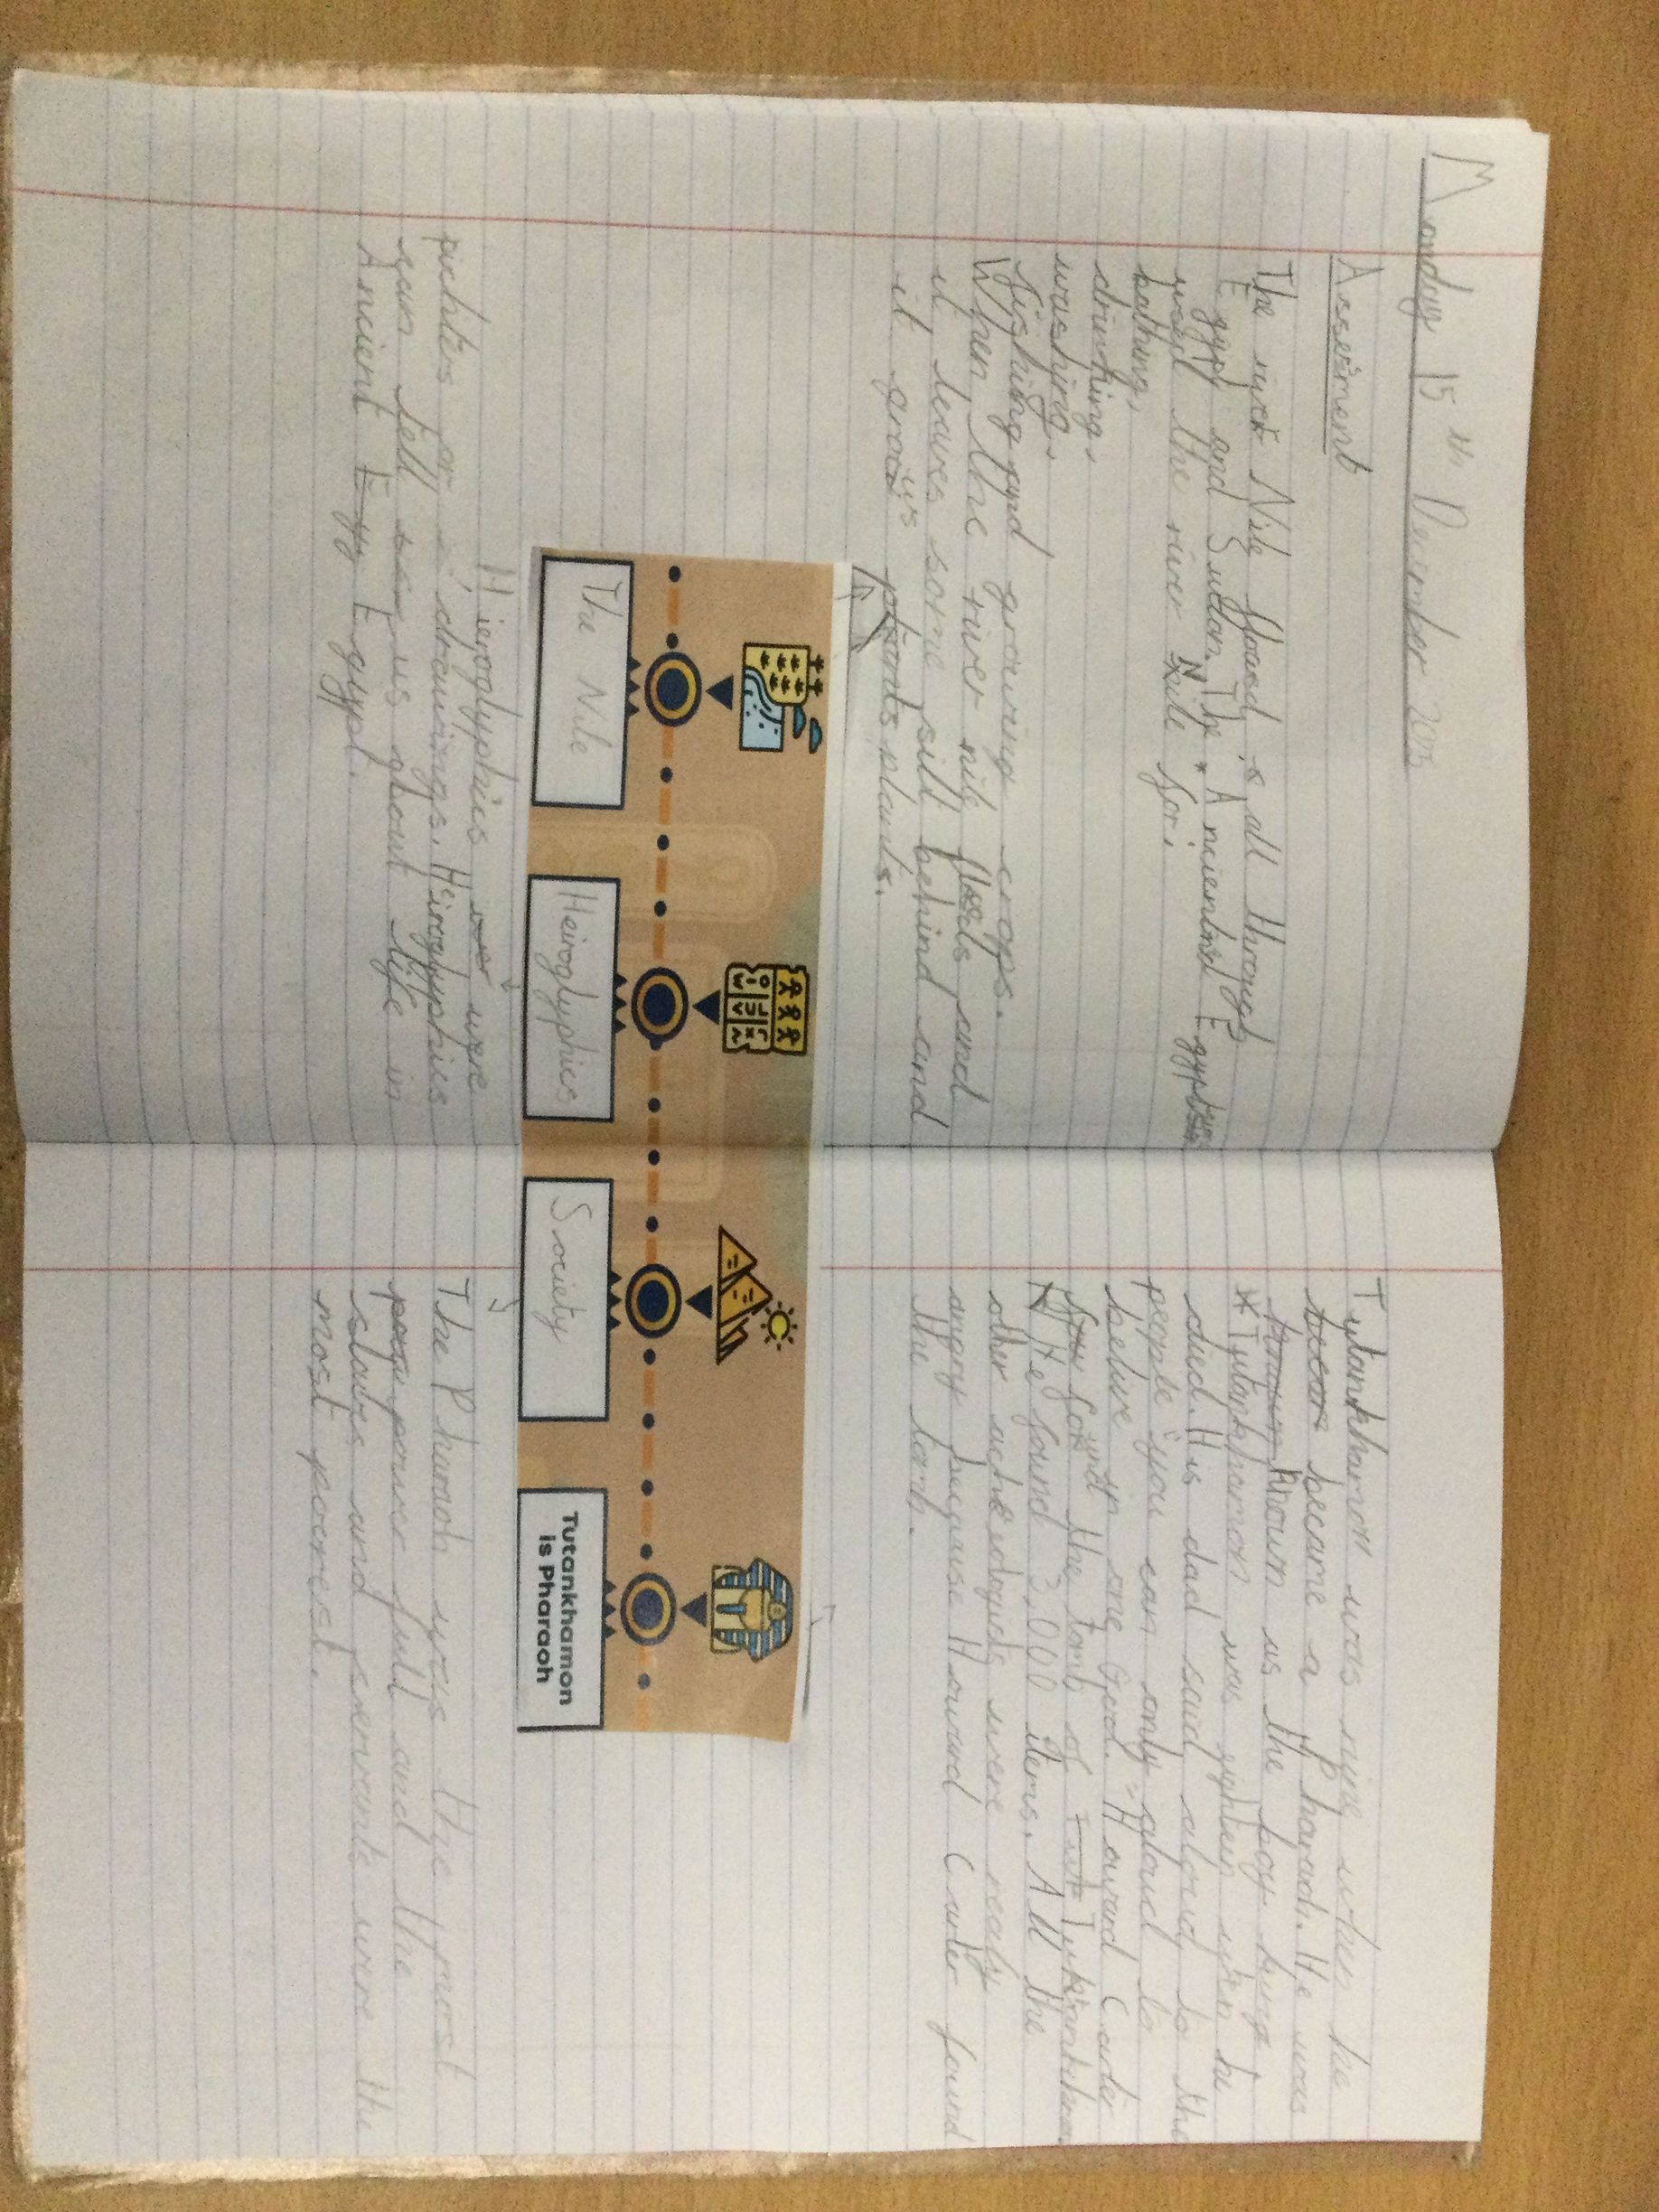 Monday 15th December 2025
Assesment
The river Nile flows all through
Egypt and Sudan. The Ancient Egyptians
used the river Nile for:
bathing,
drinking,
washing,
fishing and growing crops.
When the river nile floods and
it leaves some silt behind and
it grows plants.
The Nile
Heiroglyphics
Society
Tutankhamon
is Pharaoh
Hieroglyphics were
pichters or drawings. Hieroglyphics
can tell us about life in
Ancient Egypt.
Tutankhamon was nine when he
became a Pharaoh. He was
known as the boy king
Tutankhamon was eighten when he
died. His dad said to the
people you can only to
belive in one God. Howard Carter
found the tomb of
He found 3,000 items. All the
other were realy
angry because Howard Carter found
the tomb.
The Pharaoh was the most
power full and the
slaves and servants were the
most poorest.